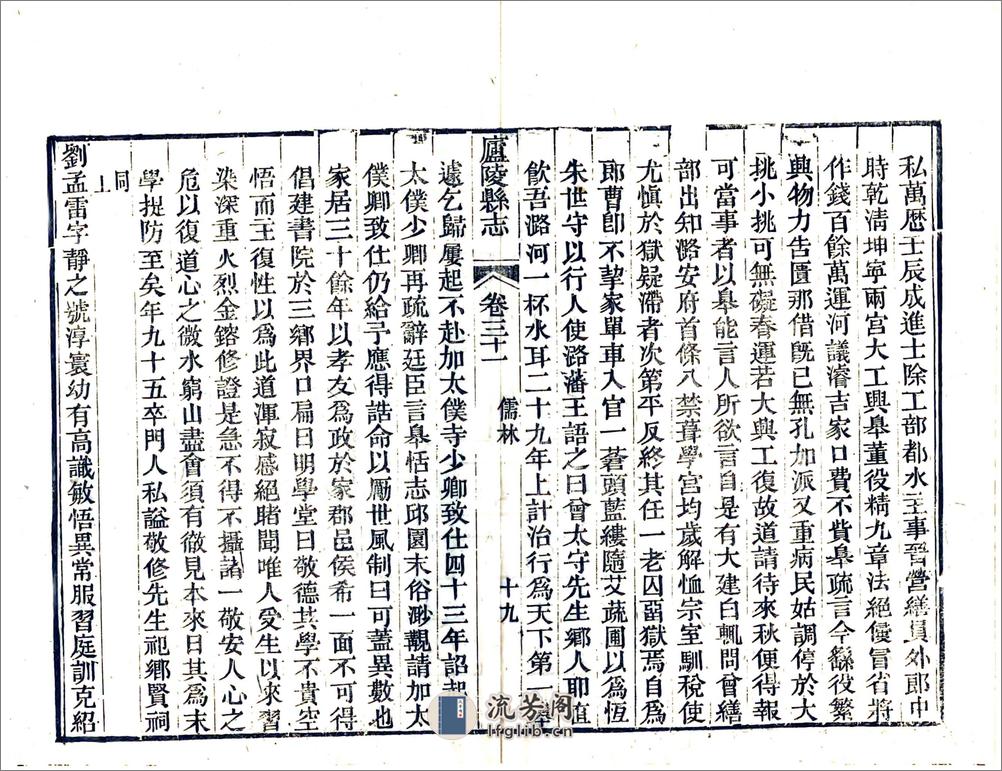 私萬歴壬辰成進士除工部都水主事晉營繕員外郎中
時乾清坤寧兩宮大工興皋董役精九章法絕儘冒省將
作錢百餘萬運河議濬吉家口費不貲皋疏言今繇役繁
興物力告匱那借旣已無孔加派又重病民姑調停於大
挑小挑可無礙春運若大興工復故道請待來秋便得報
可當事者以皋能言人所欲言自是有大建白輒問曾繕
部出知潞安府首條八禁葺學宮均歲解恤宗室馴稅使
尤慎於獄疑滯者次第平反終其任一老囚留獄焉自為
郎曹卽不挈家單車入官一蒼頭藍縷隨艾蔬圃以爲恆
朱世守以行人使潞藩王語之曰曾太守先生鄉人耶直
飲吾潞河一杯水耳二十九年上計治行爲天下第一
廬陵縣志
卷三十一
儒林
十九
遽乞歸屢起不赴加太僕寺少卿致仕四十三年詔起
太僕少卿再疏辭廷臣言皋恬志邱園末俗渺覯請加太
僕卿致仕仍給予應得誥命以厲世風制曰可蓋異數也
家居三十餘年以孝友爲政於家郡邑侯希一面不可得
倡建書院於三鄉界口扁曰明學堂曰敬德其學不貴空
悟而主復性以爲此道渾寂感絕睹聞唯人受生以來習
染深重火烈金鎔修證是急不得不攝諸一敬安人心之
危以復道心之微水窮山盡會須有徹見本來日其為末
學提防至矣年九十五卒門人私謚敬修先生祀鄉賢祠
同上
劉孟雷字靜之號淳寰幼有高識敏悟異常服習庭訓克紹
流芳阁
lfglib.cn